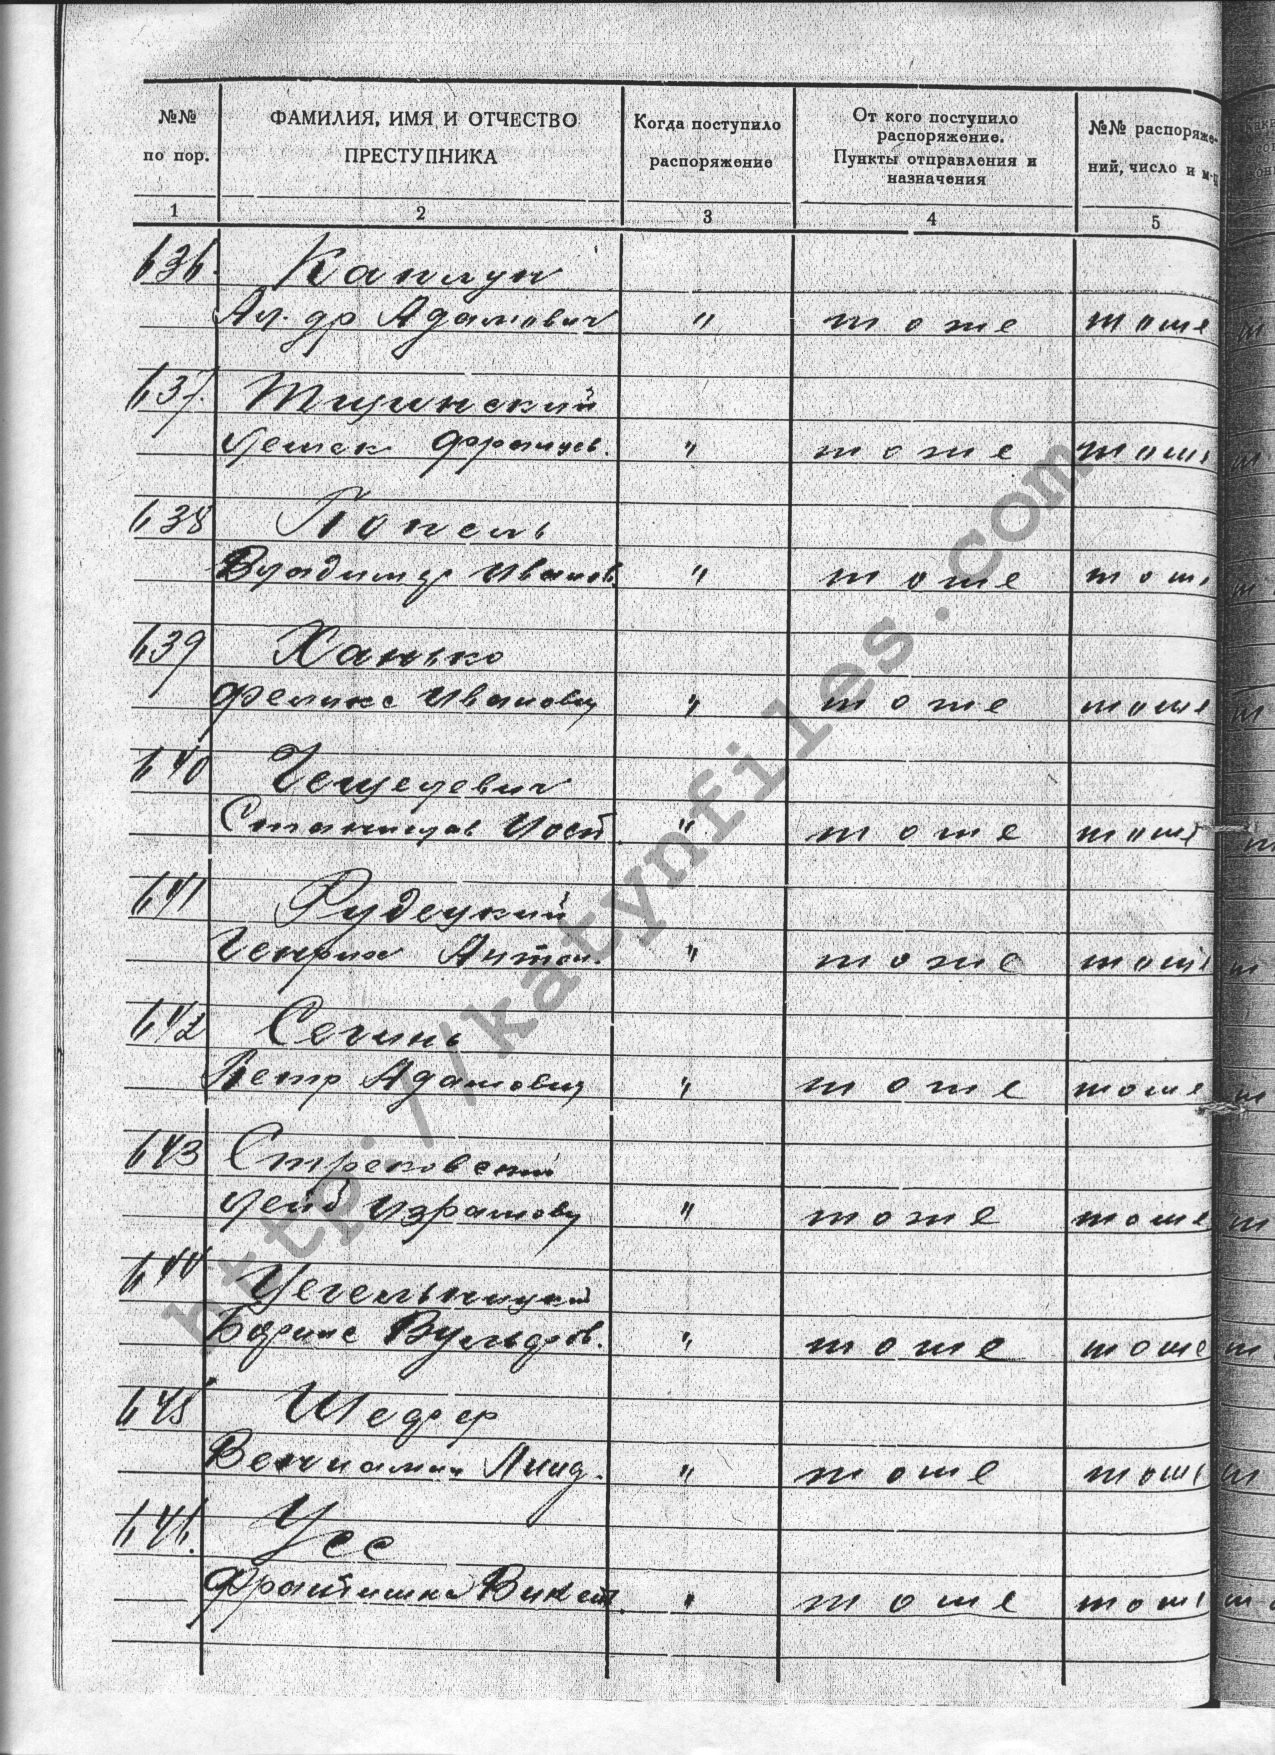 №№ по пор. ФАМИЛИЯ, ИМЯ И ОТЧЕСТВО ПРЕСТУПНИКА Когда поступило распоряжение От кого поступило распоряжение. Пункты отправления и назначения №№ распоряже-ний, число и м-ц
1 2 3 4 5
636. Каплун
Ал-др Адамович " тоже тоже
637. Тишинский
Цешек Францев. " тоже тоже
638 Попель
Владимир Иванов. " тоже тоже
639 Ханько
Феликс Иванович " тоже тоже
640
Станислав Иосиф. " тоже тоже
641 Рудецкий
Генрих Антон. " тоже тоже
642 Сегинь
Петр Адамович " тоже тоже
643 Стрековский
Лейб Израилович " тоже тоже
644 Цегельницкий
Борис Вульфов. " тоже тоже
645 Шедрер
Вениамин " тоже тоже
646. Усс
Франтишка Викент. " тоже тоже
http://katynfiles.com